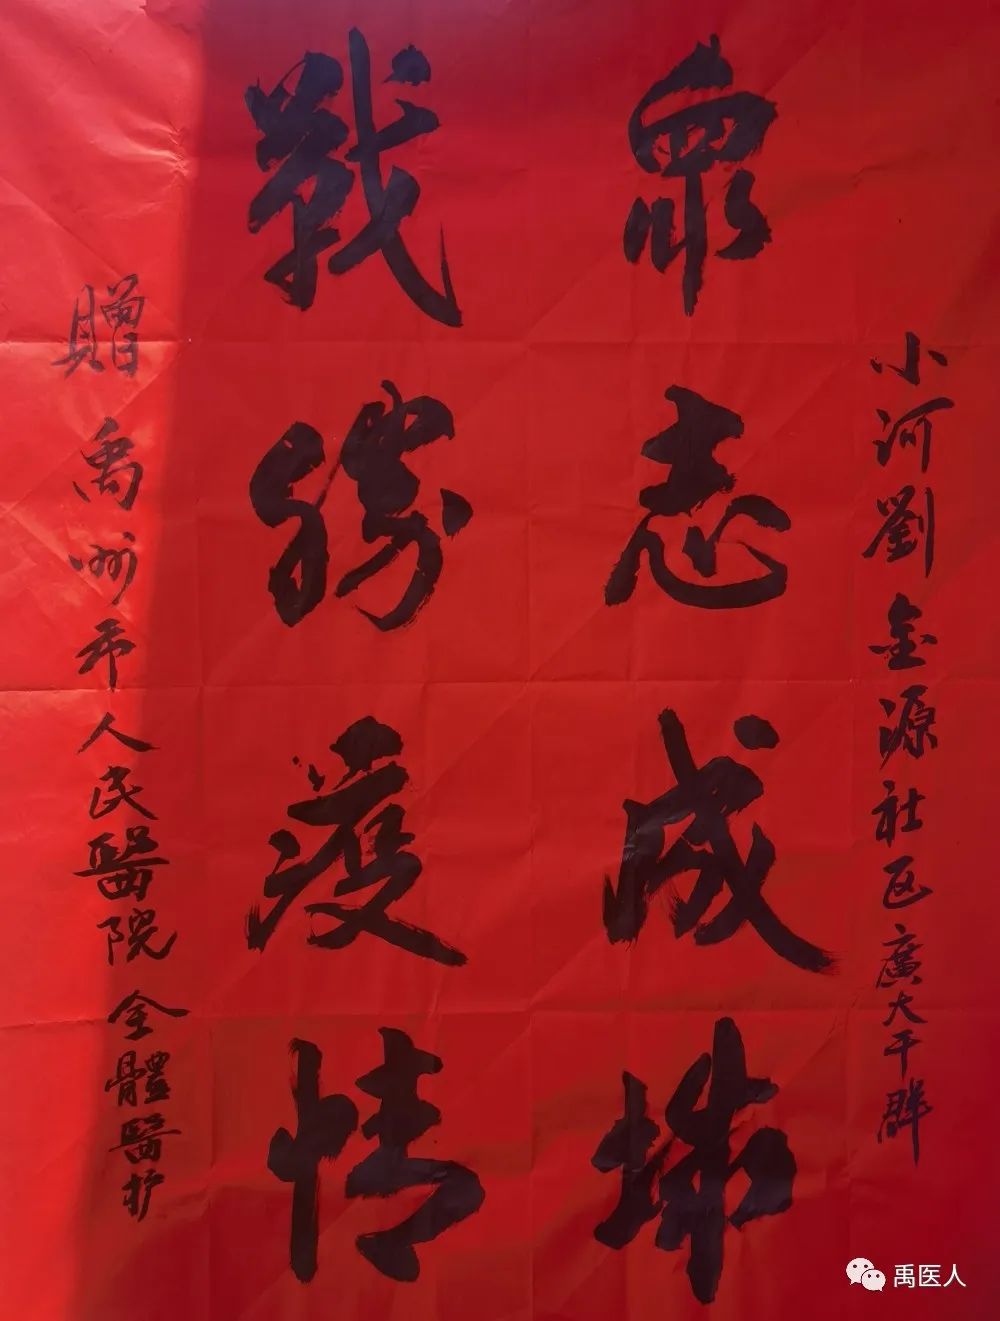 小河劉金源社区廣大干群
眾志成城
戰勝疫情
贈禹州市人民醫院 全體醫护
禹医人